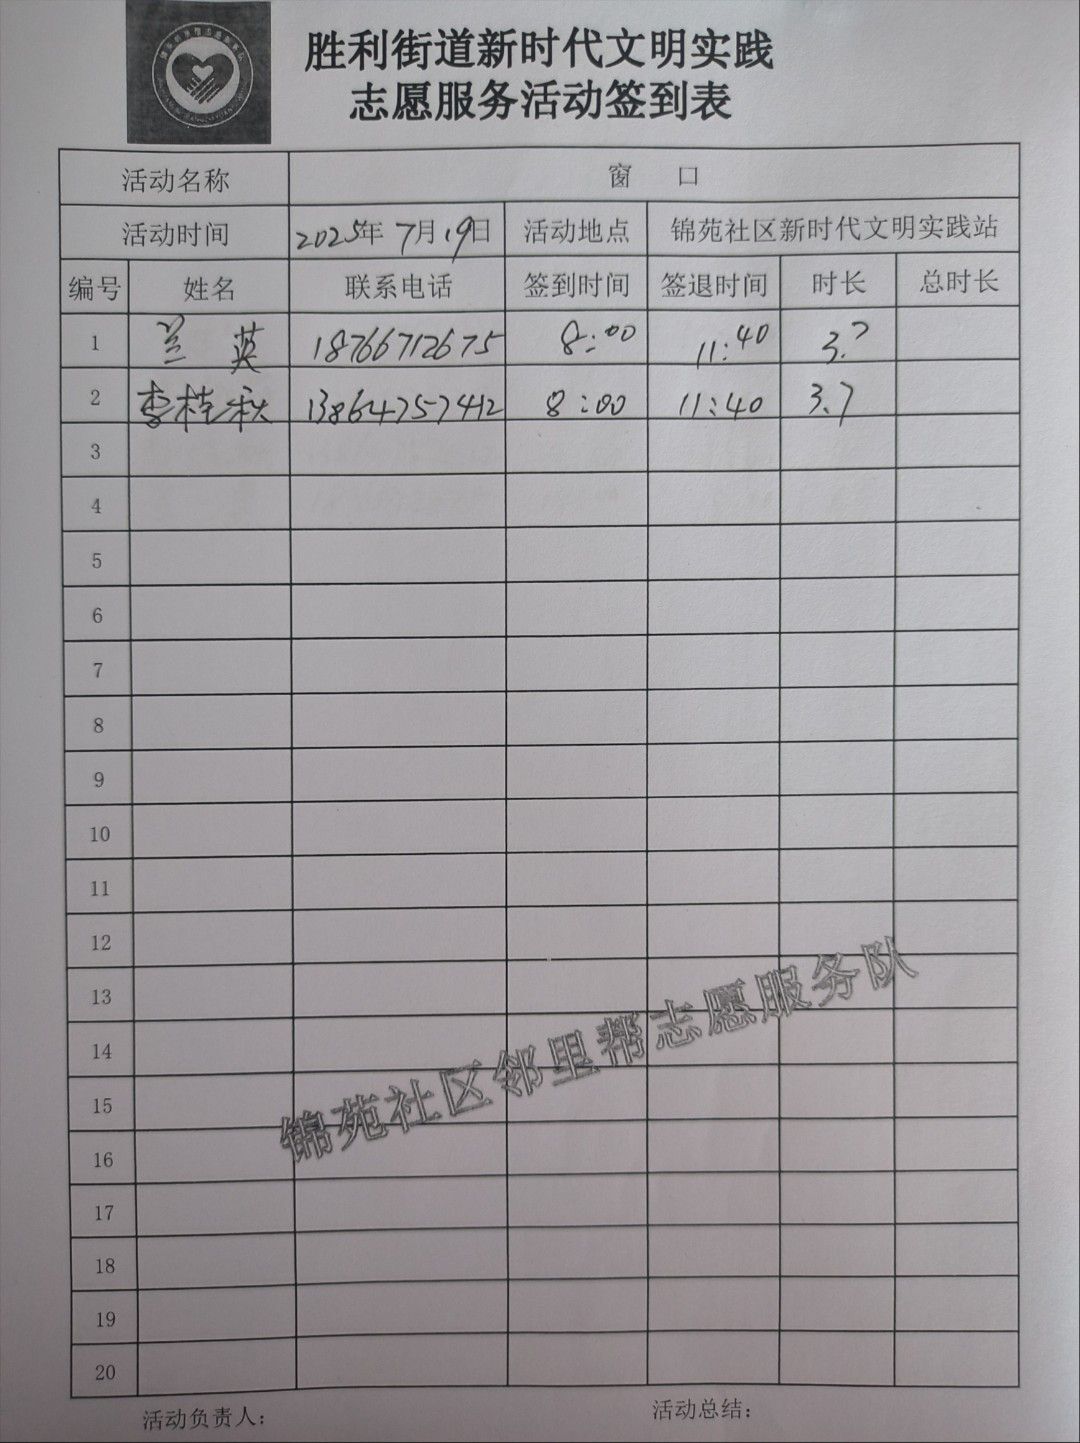 胜利街道新时代文明实践
志愿服务活动签到表
活动名称 窗 口
活动时间 2025年 7月19日 活动地点 锦苑社区新时代文明实践站
编号 姓名 联系电话 签到时间 签退时间 时长 总时长
1 兰 英 18766712675 8:00 11:40 3.7
2 李桂秋 13864757412 8:00 11:40 3.7
3
4
5
6
7
8
9
10
11
12
13
14
15
16
17
18
19
20
锦苑社区邻里帮志愿服务队
活动负责人: 活动总结: